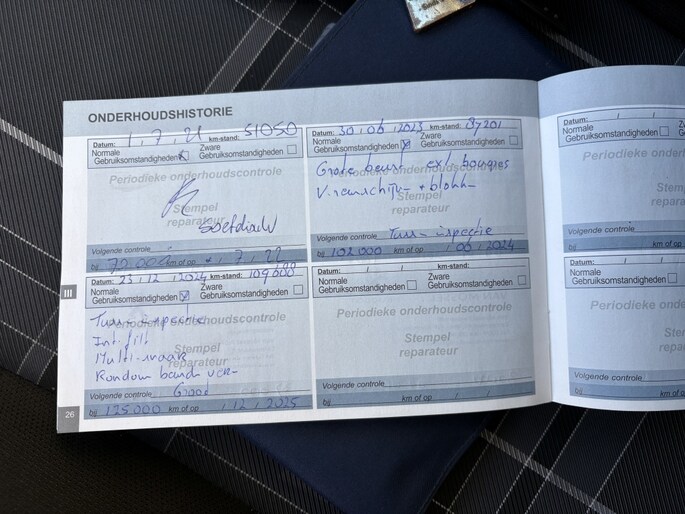 ONDERHOUDSHISTORIE
Datum: 1 , 7 , 21 km-stand: 51050
Normale Gebruiksomstandigheden Zware Gebruiksomstandigheden
Periodieke onderhoudscontrole
Stempel
reparateur
Volgende controle
bij 72.000 km of op 7 , 22
Datum: 30 , 06 , 2023 km-stand: 87201
Normale Gebruiksomstandigheden Zware Gebruiksomstandigheden
Periodieke onderhoudscontrole
Grote beurt ex/ bougies
V. remschijv- + blokk-
Stempel
reparateur
Volgende controle Tuss-inspectie
bij 102.000 km of op / 06 / 2024
Datum: 23 , 12 , 2024 km-stand: 109600
Normale Gebruiksomstandigheden Zware Gebruiksomstandigheden
Periodieke onderhoudscontrole
Tuss-inspectie
Int. filt
Stempel
reparateur
Multi-snaar
Rondom band ver-
Volgende controle Groot
bij 125.000 km of op / 12 / 2025
Datum: / / km-stand:
Normale Gebruiksomstandigheden Zware Gebruiksomstandigheden
Periodieke onderhoudscontrole
Stempel
reparateur
Volgende controle
bij km of op / /
III
26
Datum: / /
Normale Gebruiksomstandigheden
Periodieke onderh
Stemp
repara
Volgende controle
bij km of op
Datum: / /
Normale Gebruiksomstandigheden
Periodieke onderh
Stem
repara
Volgende controle
bij km of op